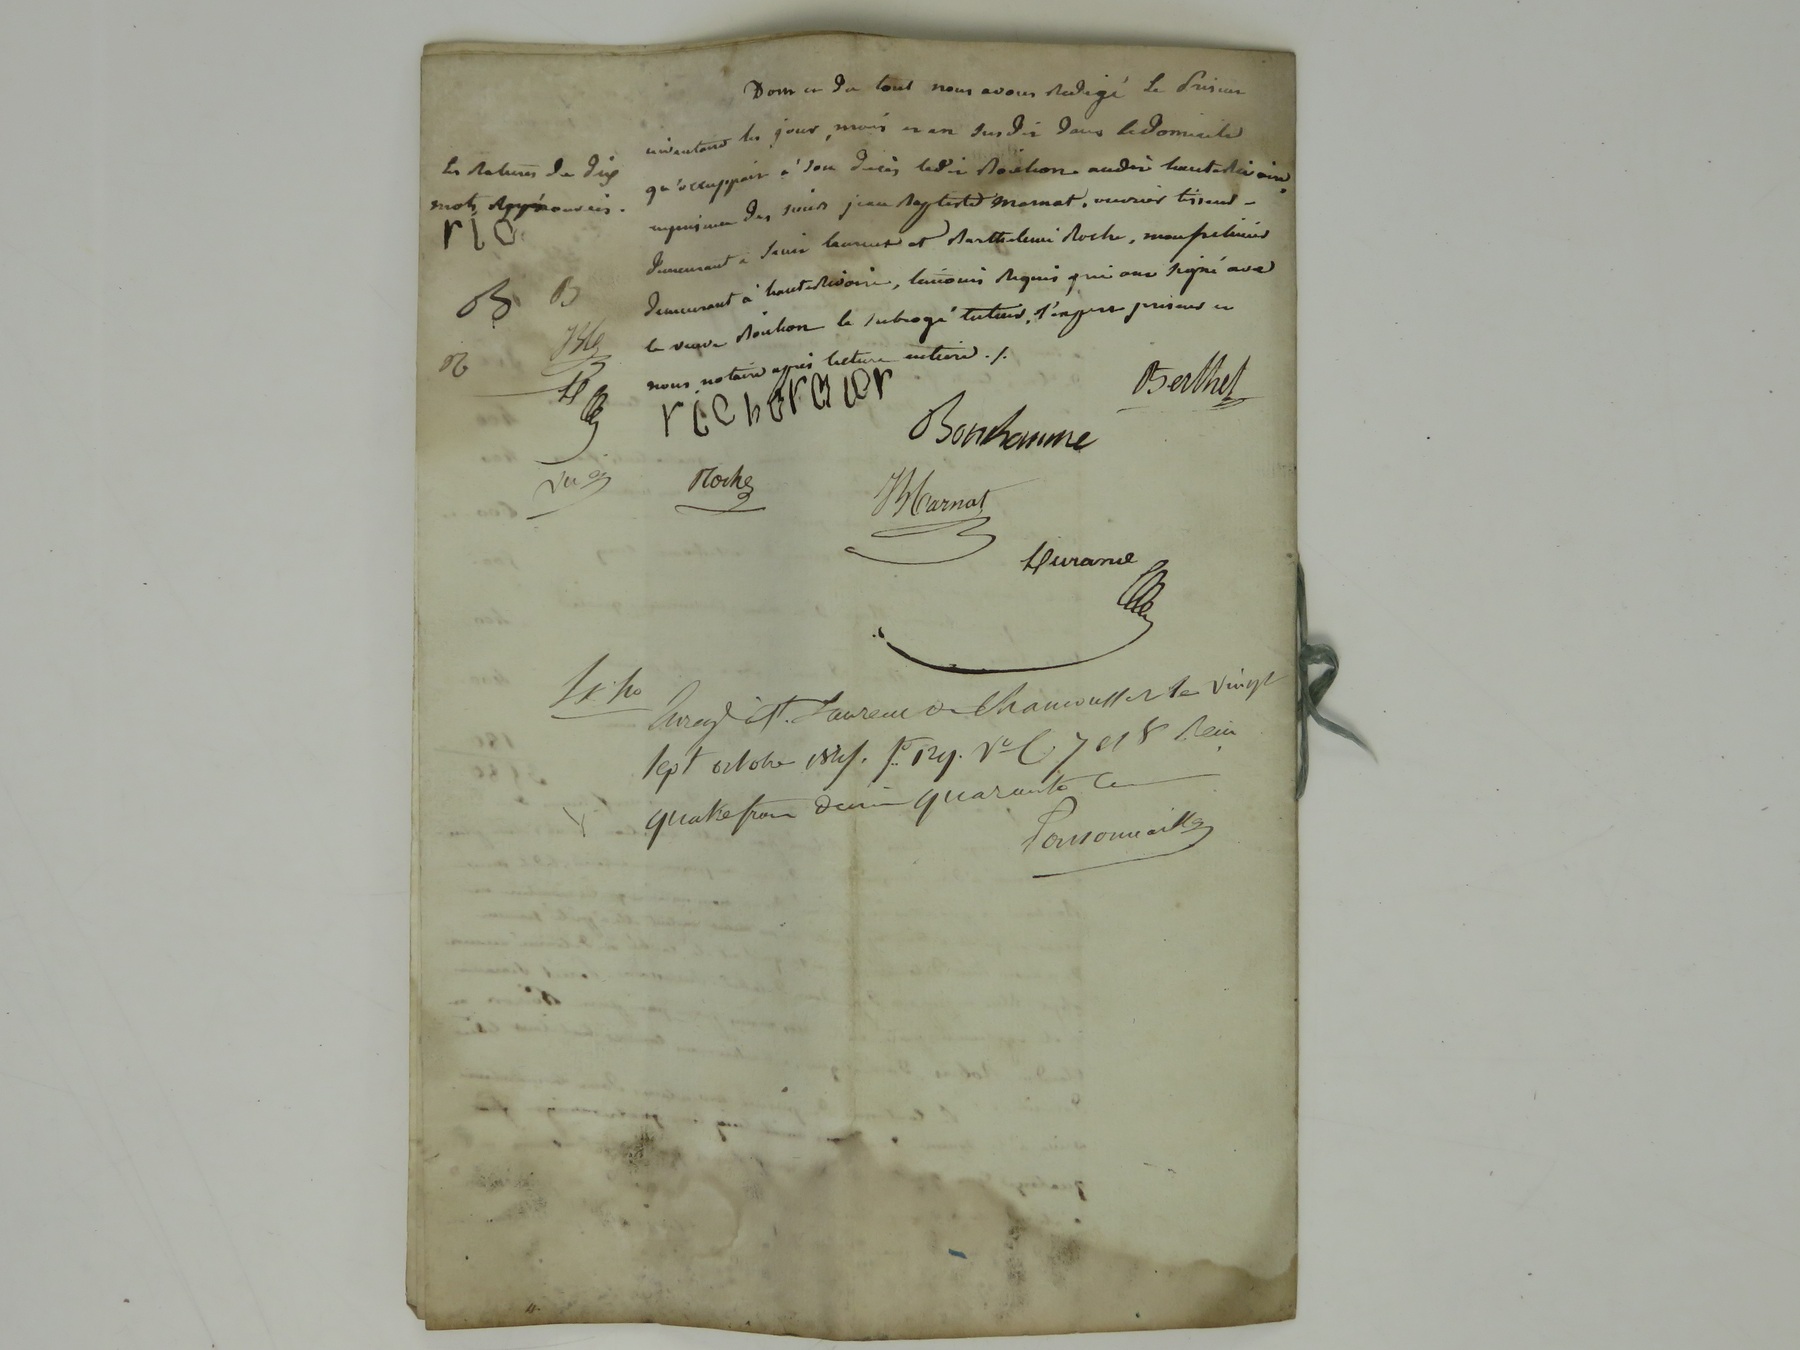 Dont et du tout nous avons rédigé le présent
inventaire les jour, mois et an susdit dans le domicile
qu'occuppait à son décès ledit Rochon audit hauterivoire,
en présence des sieurs jean Baptiste Marnat, ouvrier tisseur
demeurant à Saint laurent et Barthelemi Roche,
demeurant à hauterivoire, témoins requis qui ont signé avec
la veuve Rochon le subrogé tuteur, l'expert priseur et
nous notaire après lecture entière ./.
La rature de dix
mots approuvés.
ric
B B
R
richerder
Berthet
Bonhaume
Roche
JB Marnat
Durand
Enregt à St. Laurent de Chamousset le vingt
sept octobre 184 fo 129 Vo C 7 et 8 Reçu
quatre francs décime quarante c
Ponsonnaille